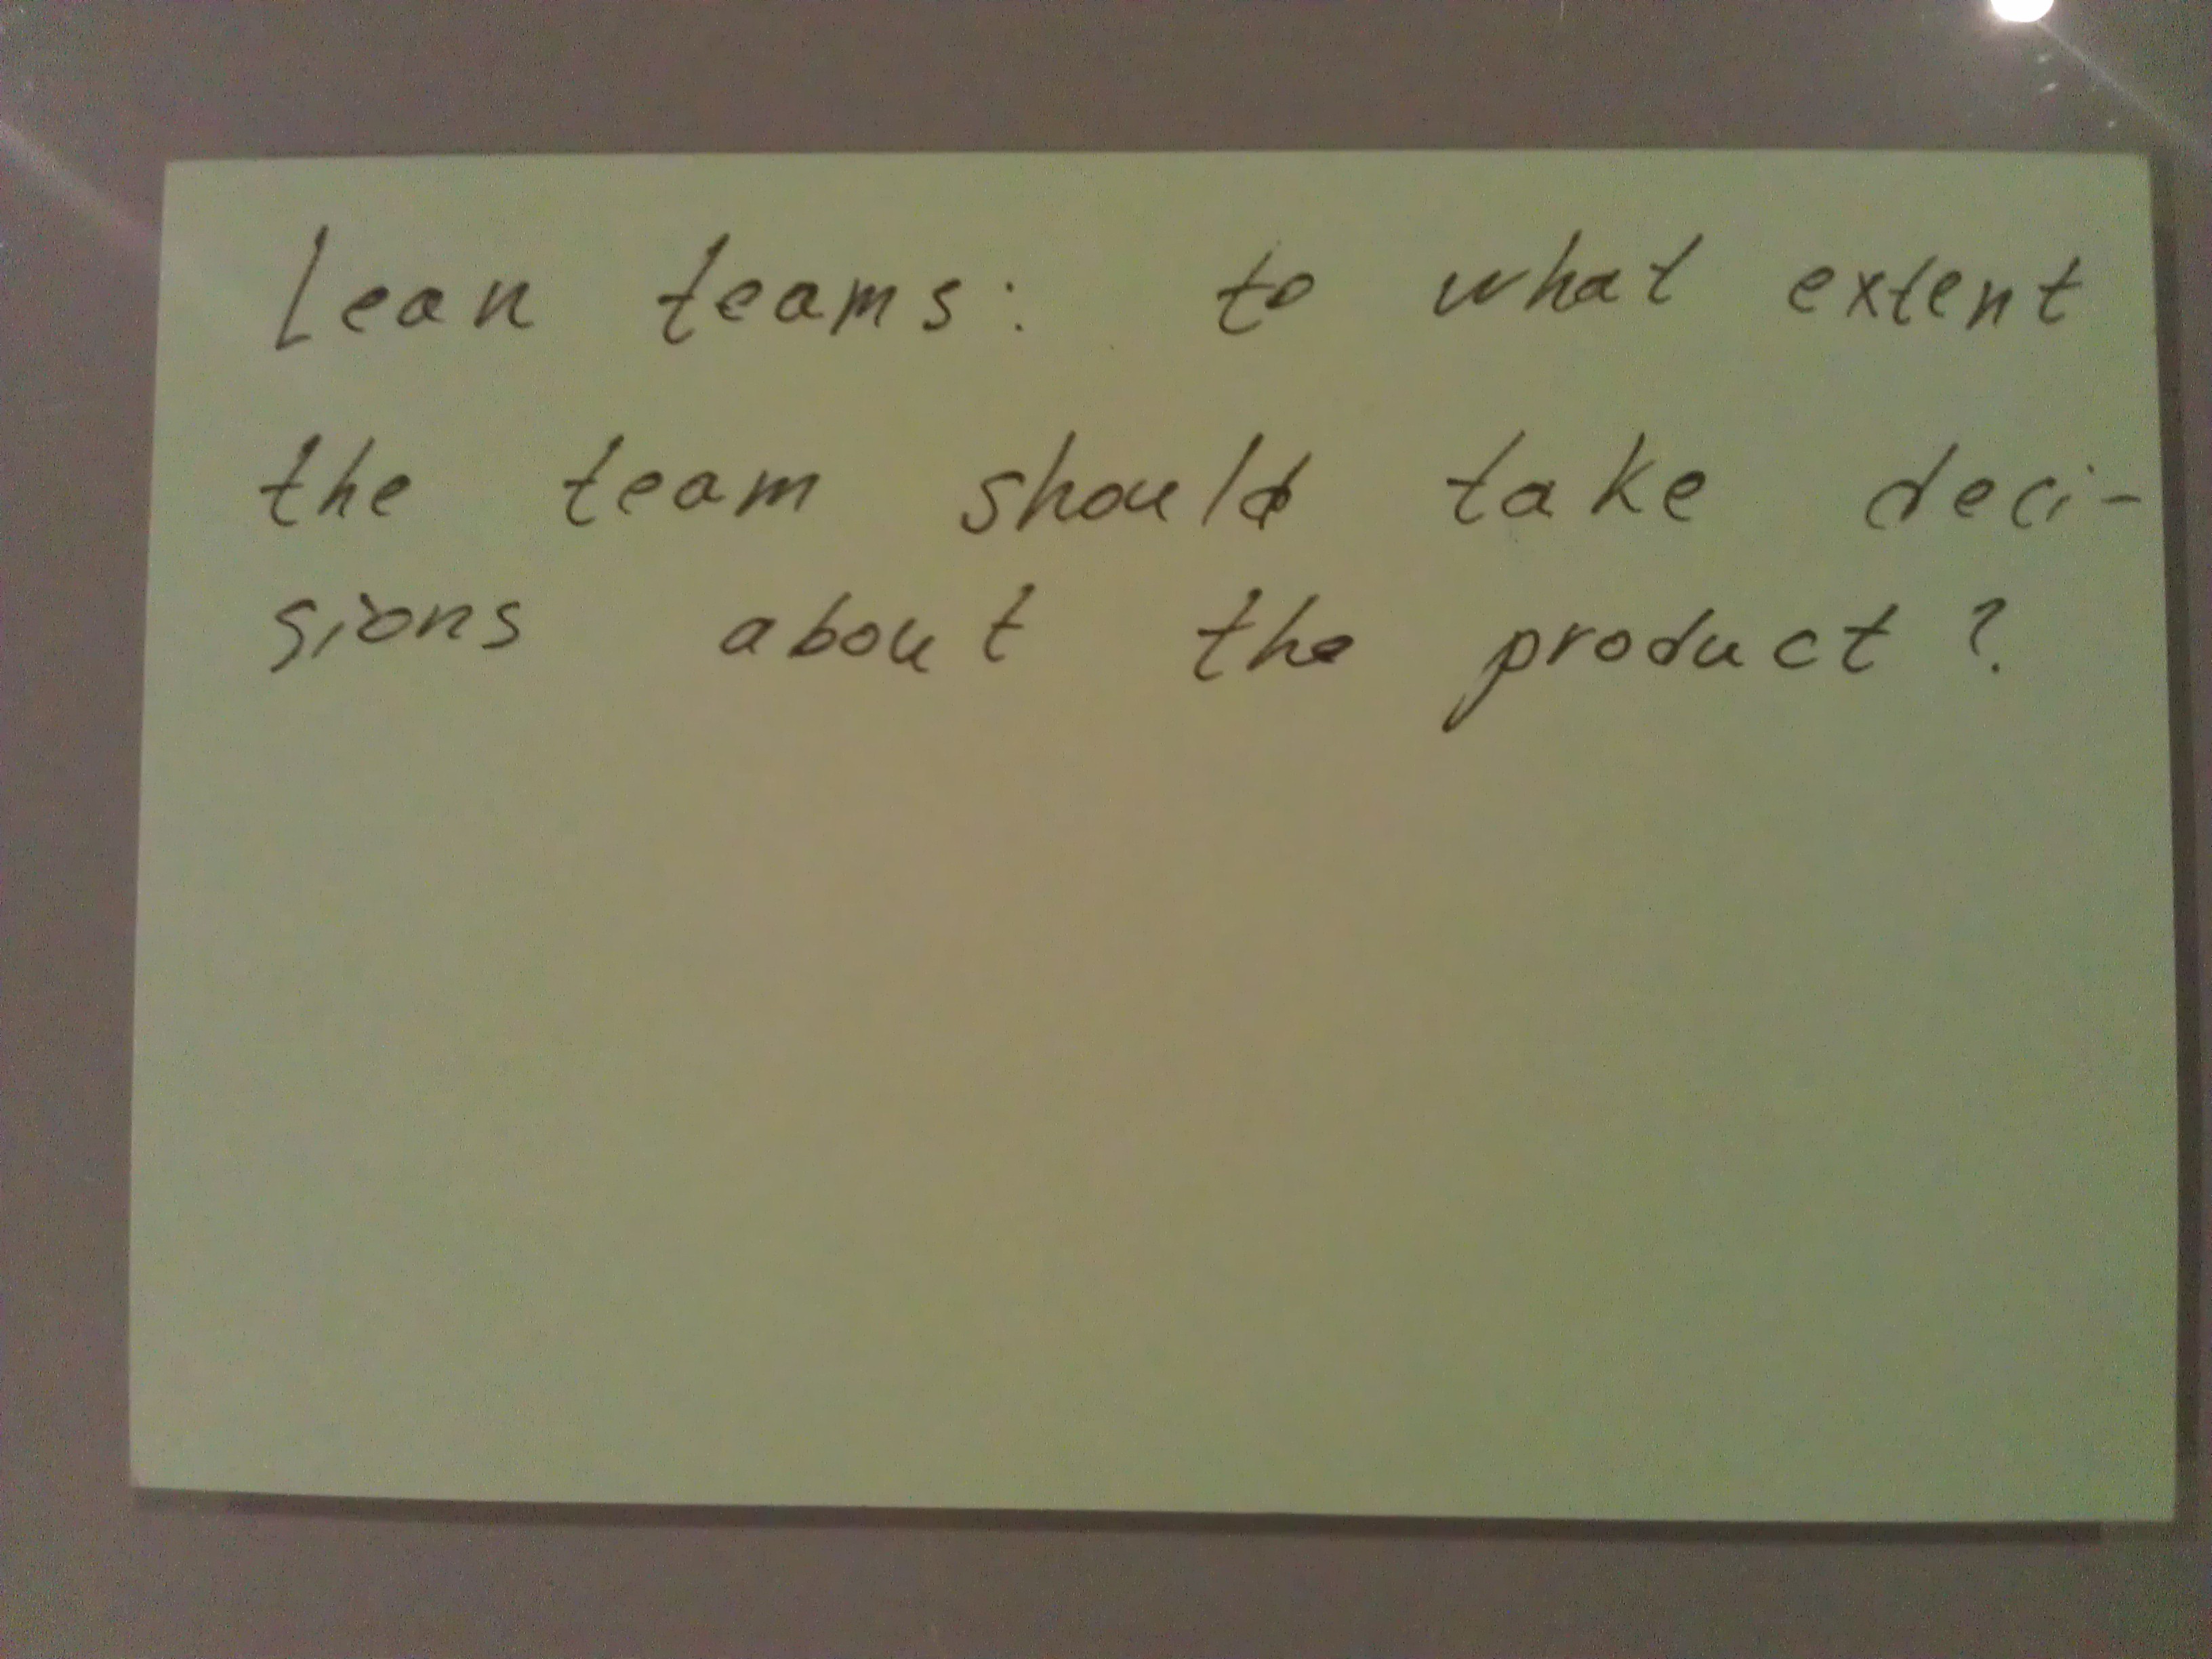 Lean teams: to what extent
the team should take deci-
sions about the product?